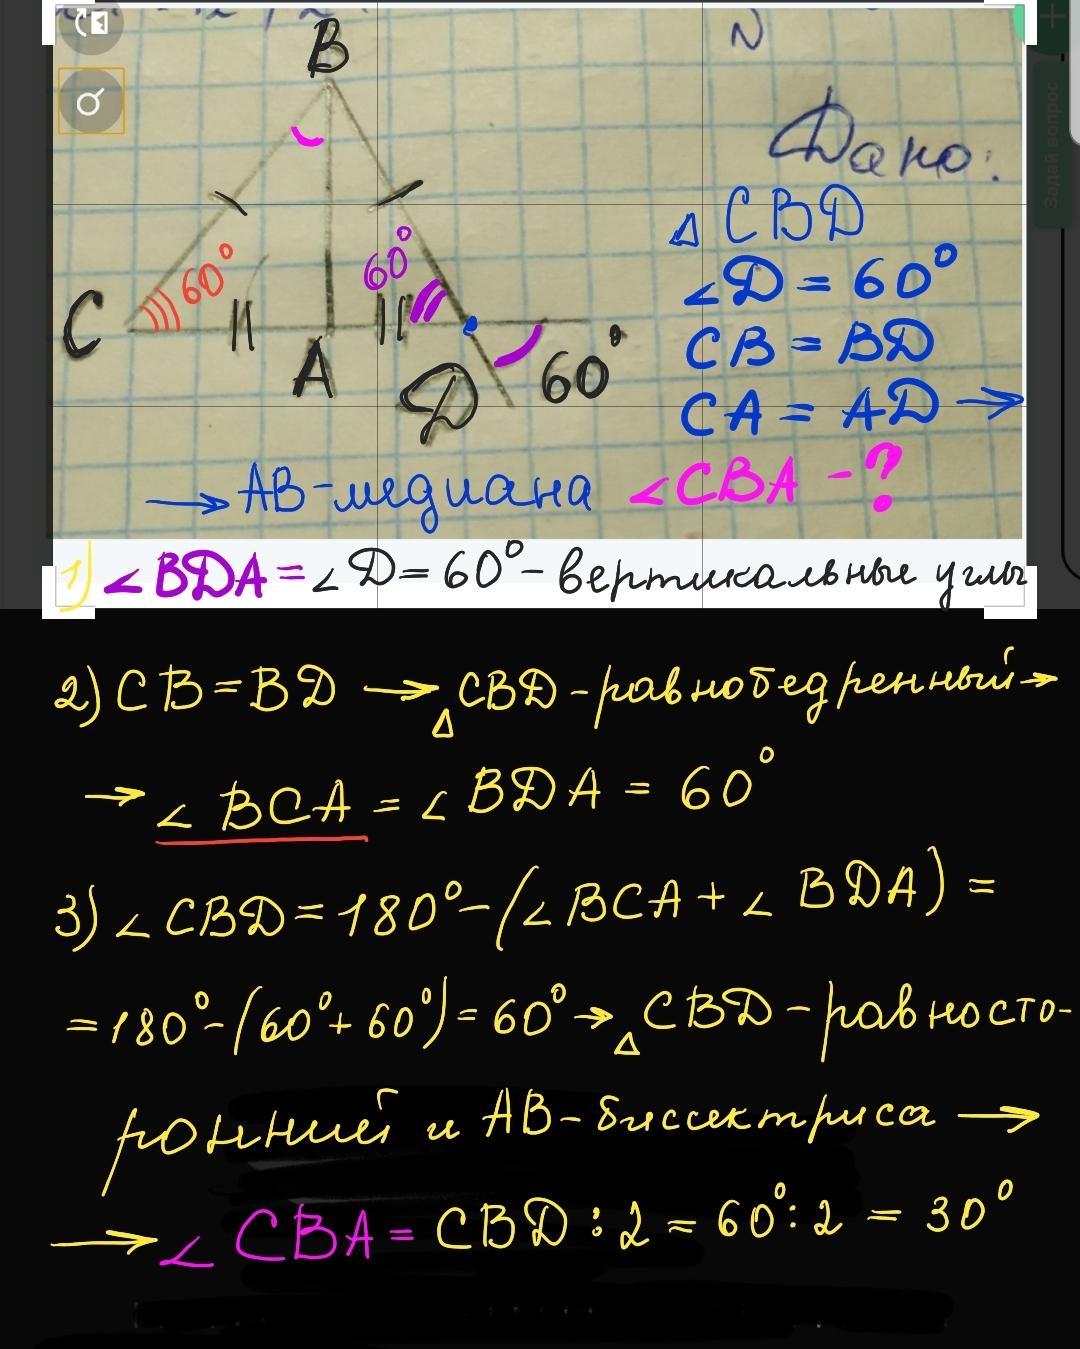 N
B
Дано:
△ CBD
∠D = 60°
CB = BD
CA = AD →
60°
60°
C
A
D
60°
→ AB-медиана ∠CBA - ?
1) ∠BDA = ∠D = 60° - вертикальные углы
2) CB = BD → △ CBD - равнобедренный →
→ ∠ BCA = ∠ BDA = 60°
3) ∠ CBD = 180° - (∠ BCA + ∠ BDA) =
= 180° - (60° + 60°) = 60° → △ CBD - равносто-
ронний и AB - биссектриса →
→ ∠ CBA = CBD : 2 = 60° : 2 = 30°
Задай вопрос